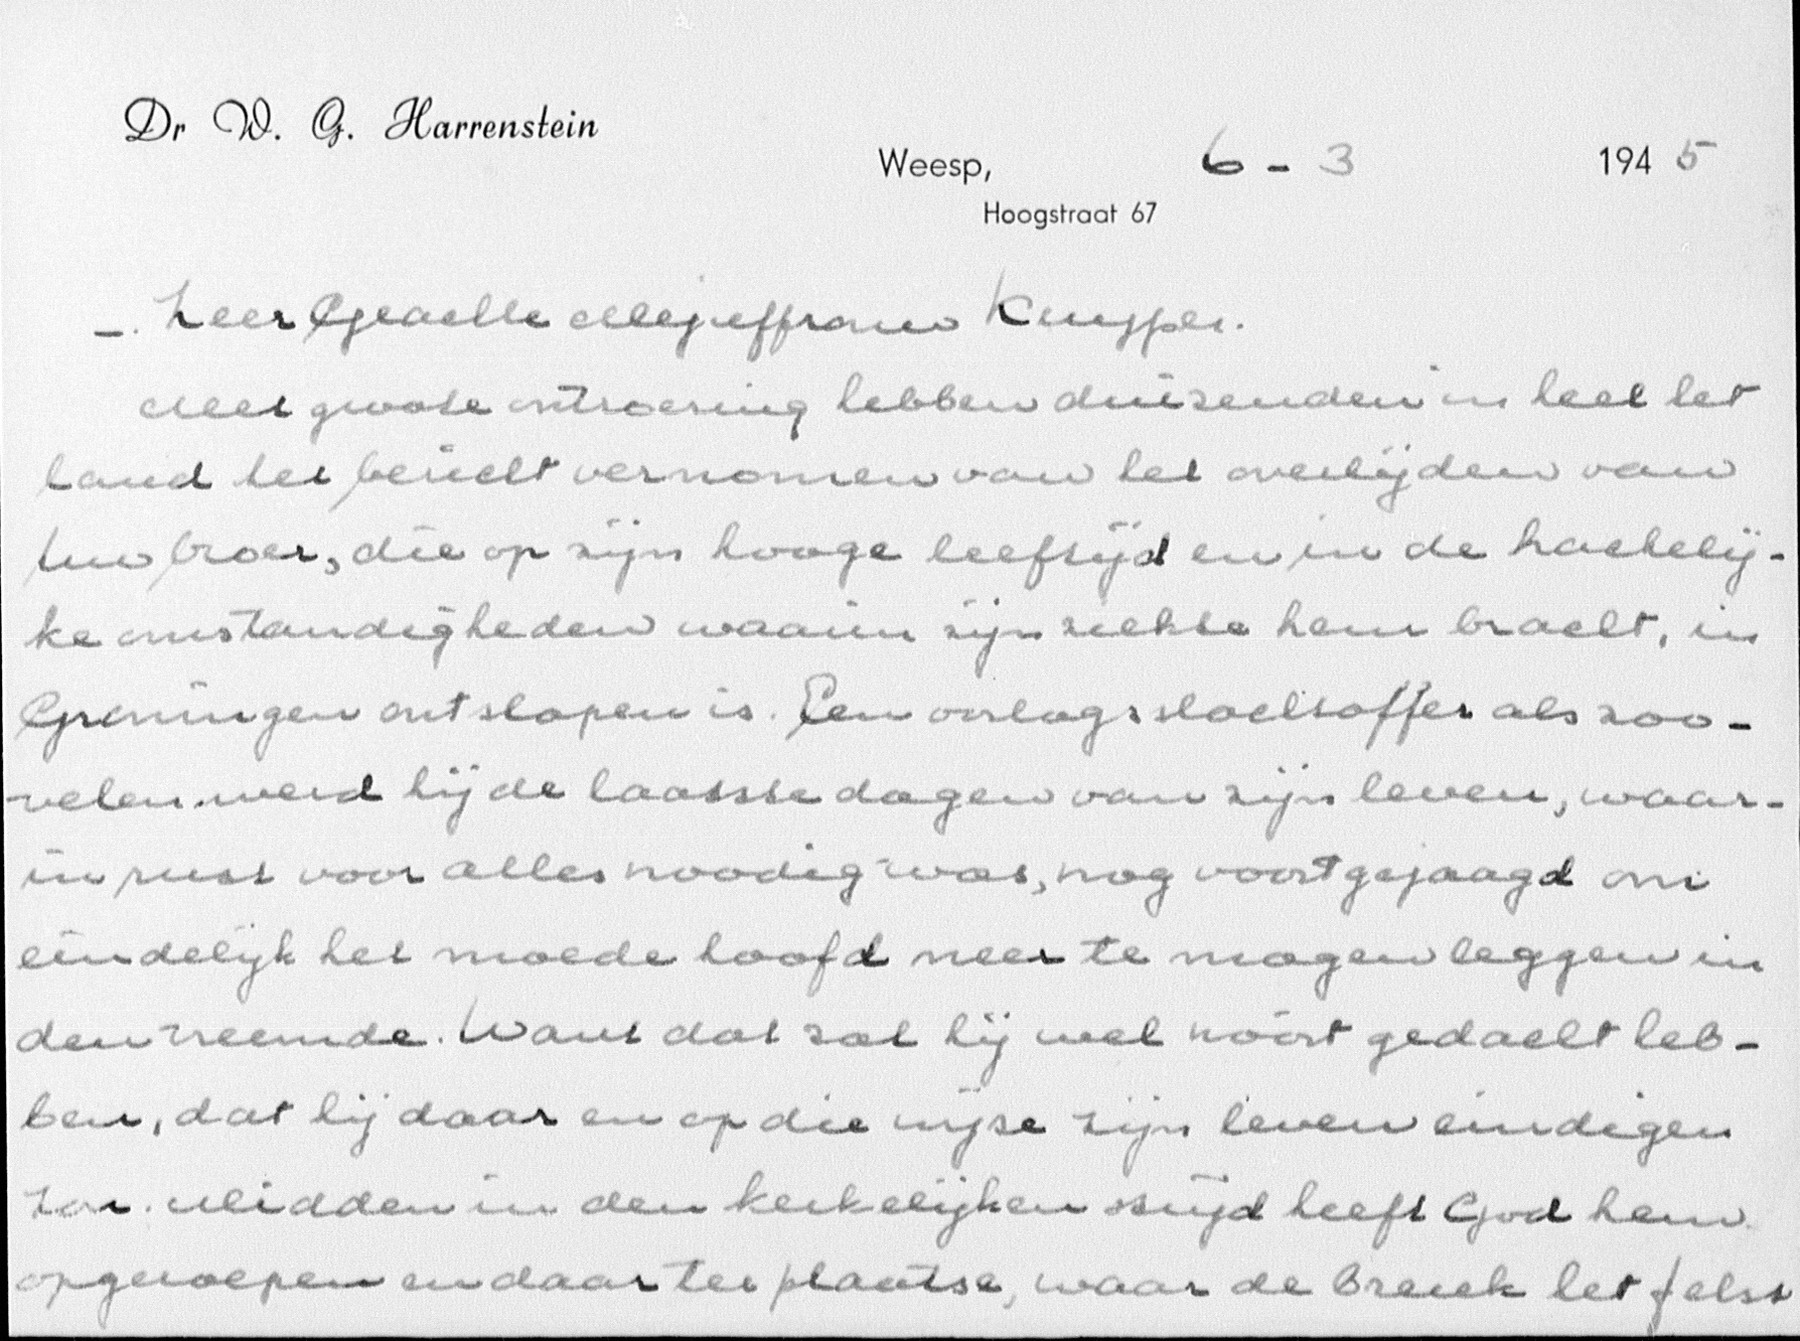 Dr W. G. Harrenstein
Weesp, 6 - 3 1945
Hoogstraat 67
-. Zeer Geachte Mejuffrouw Kuyper.
Met groote ontroering hebben duizenden in heel het
land het bericht vernomen van het overlijden van
Uw broer, die op zijn hooge leeftijd en in de hachelij-
ke omstandigheden waarin zijn ziekte hem bracht, in
Groningen ontslapen is. Een oorlogsslachtoffer als zoo-
velen werd hij de laatste dagen van zijn leven, waar-
in rust voor alles noodig was, nog voortgejaagd om
eindelijk het moede hoofd neer te mogen leggen in
den vreemde. Want dat zal hij wel nóóit gedacht heb-
ben, dat hij daar en op die wijze zijn leven eindigen
zou. Midden in den kerkelijken strijd heeft God hem
opgeroepen en daar ter plaatse, waar de breuk het felst